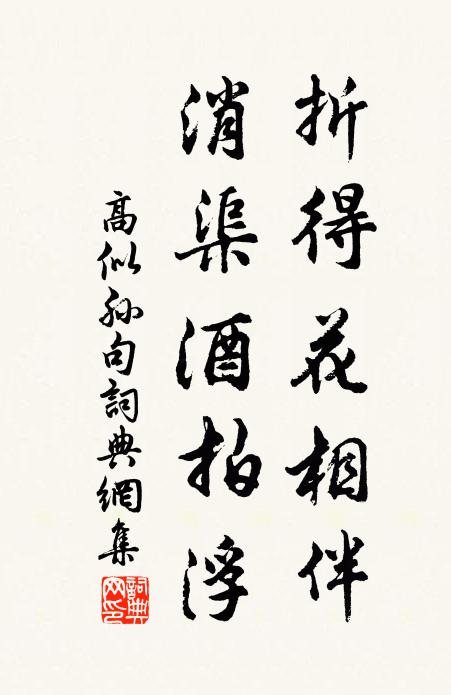 折得花相伴
消渠酒拍浮
高似孫句詞典網集
詞典網印